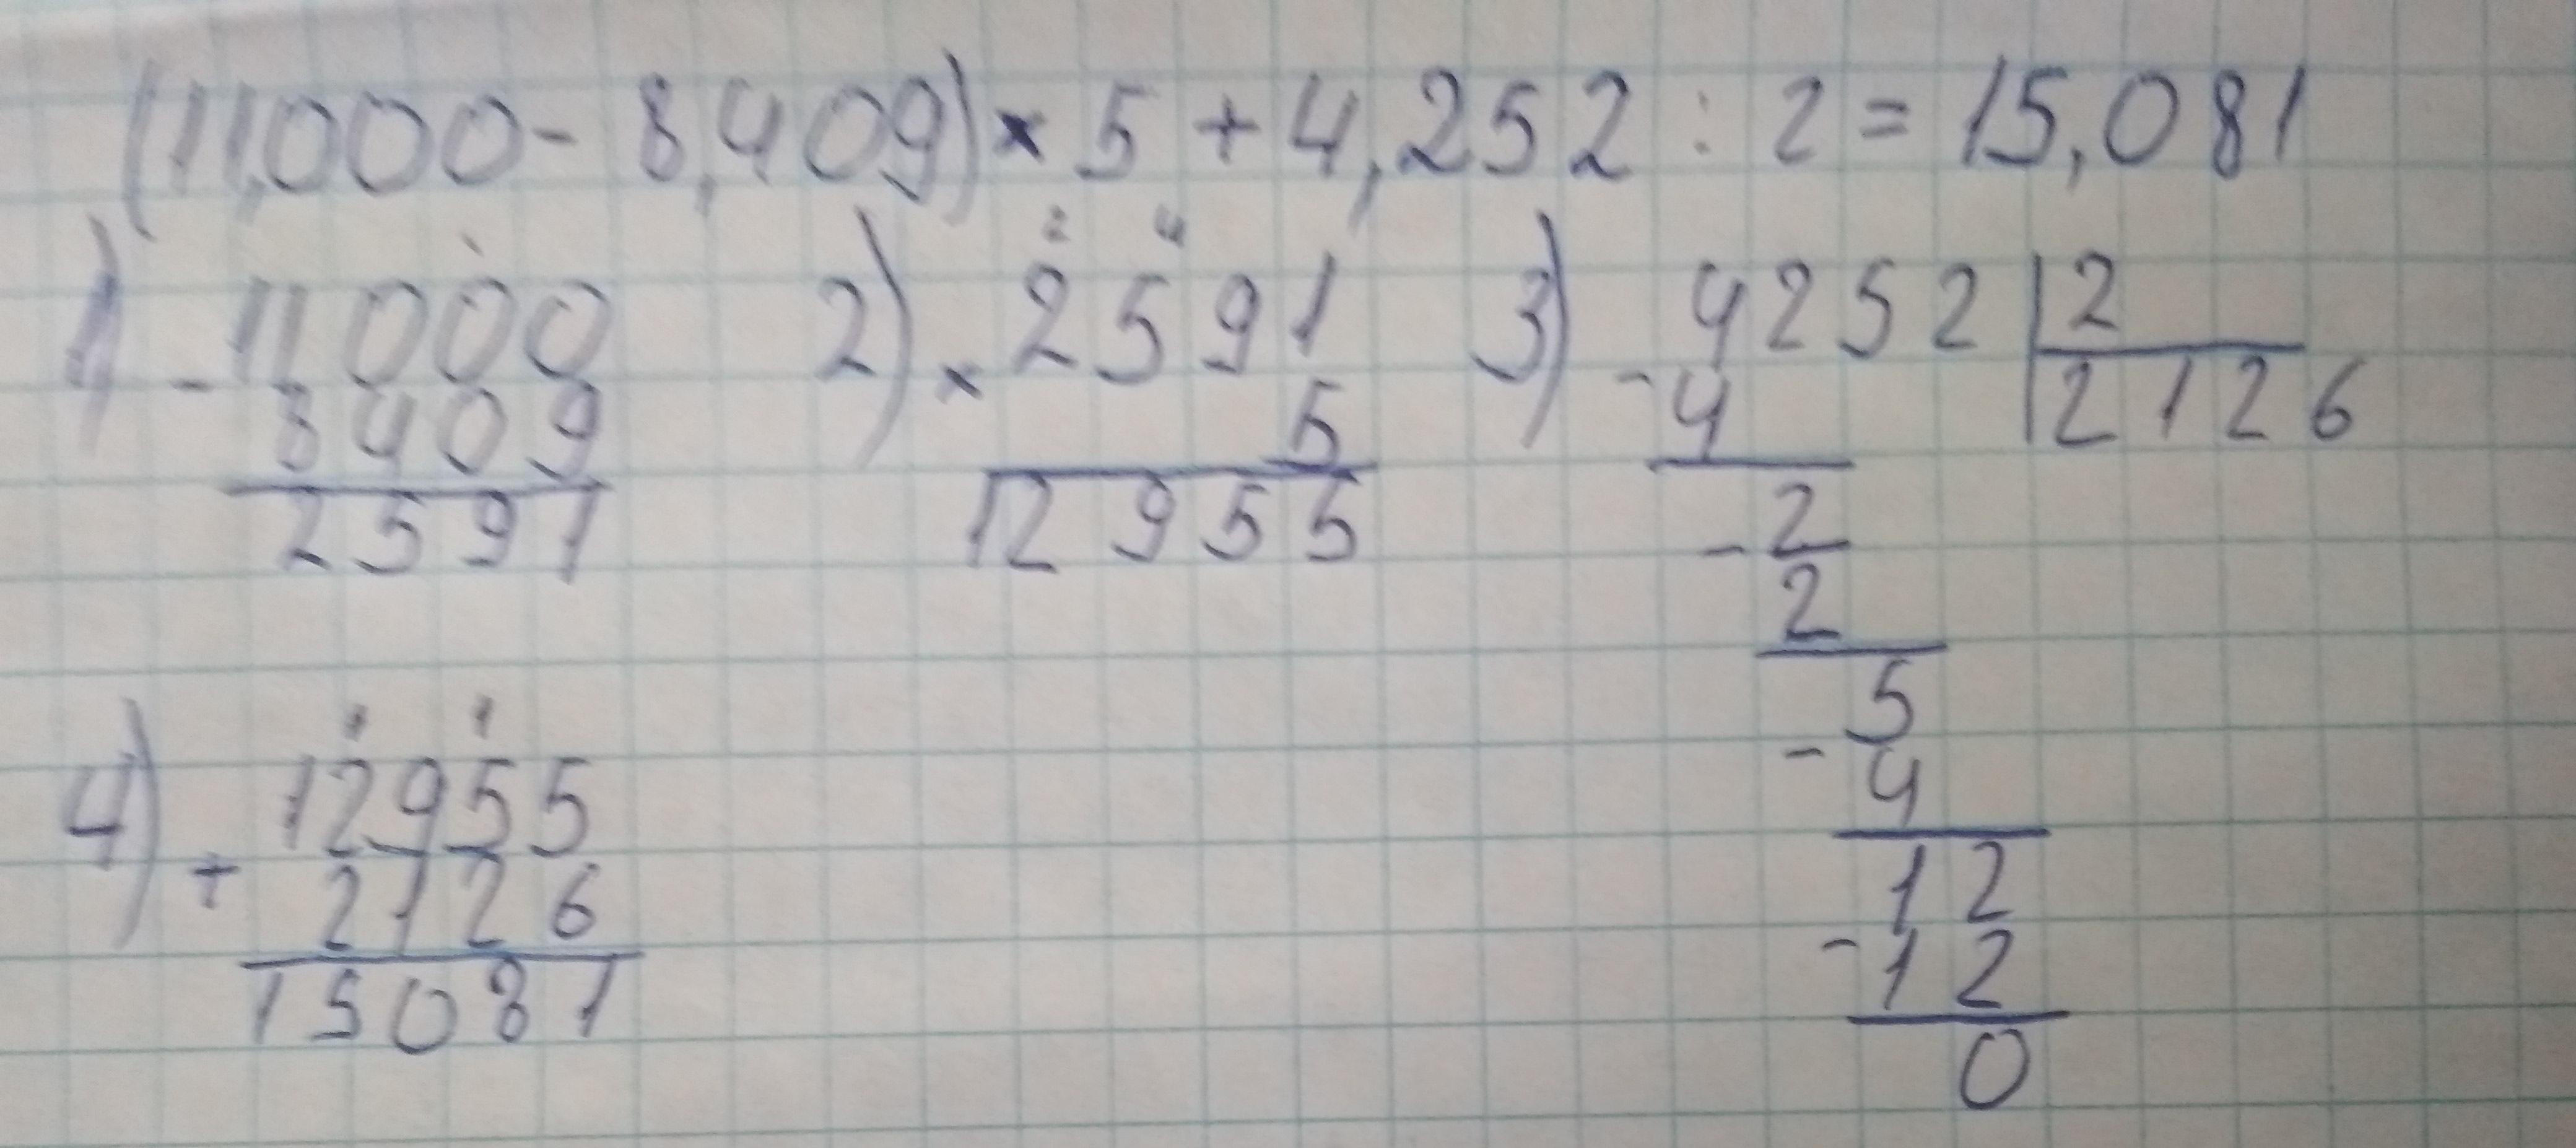 (11,000 - 8,409) × 5 + 4,252 : 2 = 15,081
1) - 11000
8409
2591
2) 2 4
× 2591
5
12955
3) - 4252 | 2
4 | 2126
- 2
2
- 5
4
- 12
12
0
4) 1 1
+ 12955
2126
15081